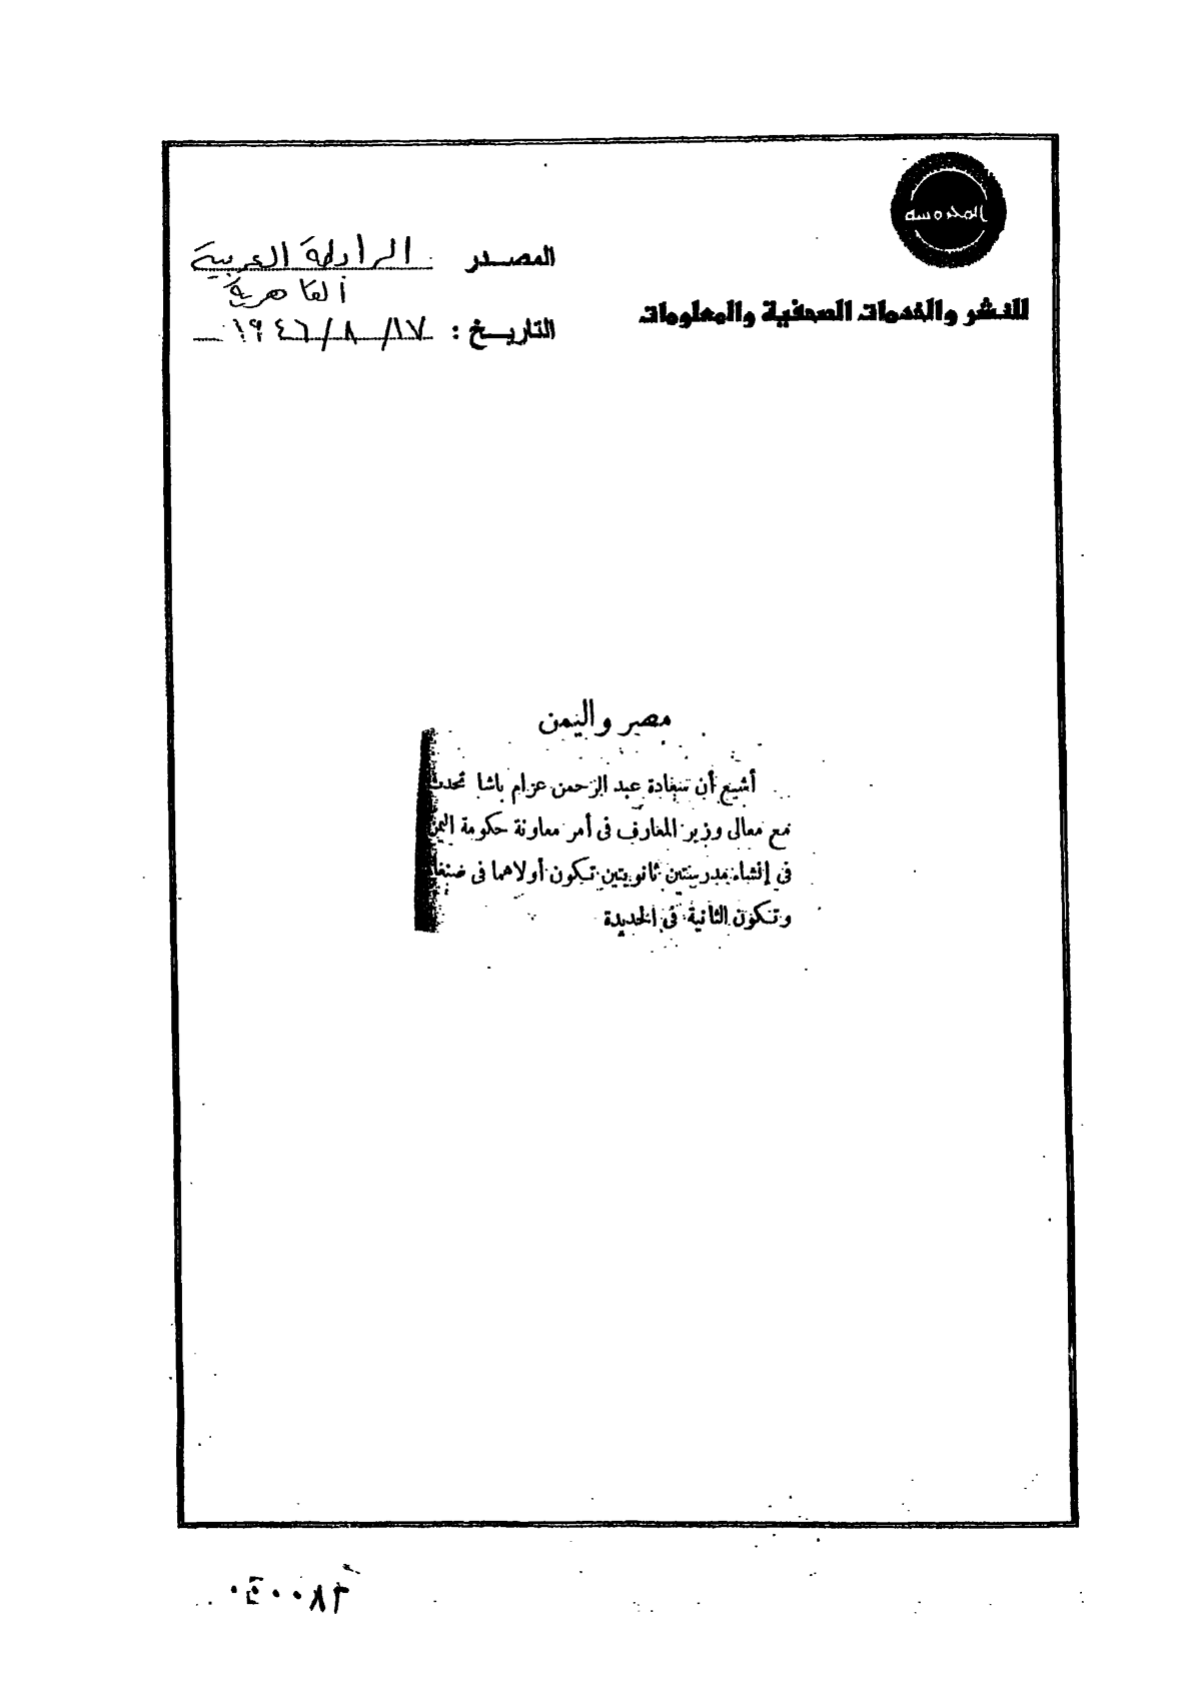 المحروسه
للنشر والخدمات الصحفية والمعلومات
المصدر الرابطة العربية
القاهرية
التاريخ : ١٩٤٦/٨/١٧
مصر واليمن
أشيع أن سعادة عبد الرحمن عزام باشا تحدث
مع معالى وزير المعارف فى أمر معاونة حكومة اليمن
فى إنشاء مدرستين ثانويتين تكون أولاهما فى صنعاء
وتكون الثانية فى الحديدة